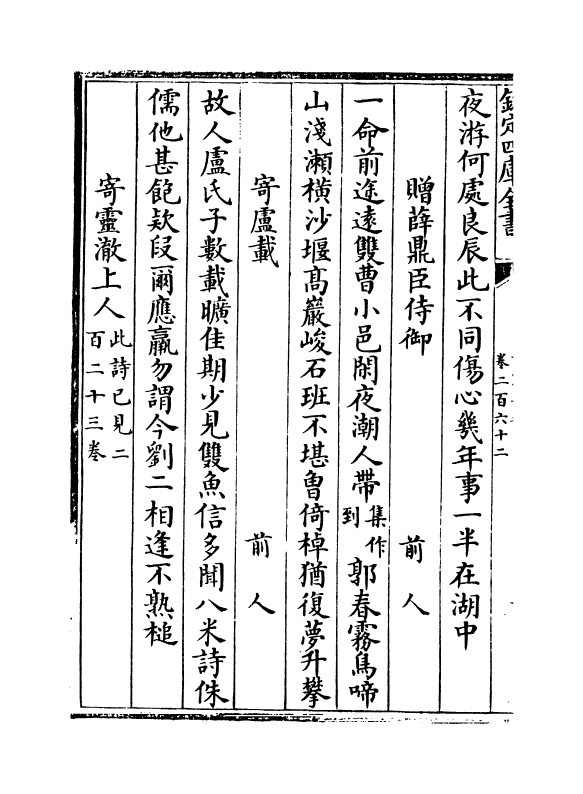 欽定四庫全書
卷二百六十二
夜游何處良辰此不同傷心幾年事一半在湖中
贈薛鼎臣侍御　前人
一命前途遠雙曹小邑閑夜潮人帶集作到郭春霧鳥啼
山淺瀨橫沙堰髙巖峻石班不堪曾倚棹猶復夢升攀
寄盧載　前人
故人盧氏子數載曠佳期少見雙魚信多聞八米詩侏
儒他甚飽欵段爾應羸勿謂今劉二相逢不熟槌
寄靈澈上人此詩已見二百二十三卷